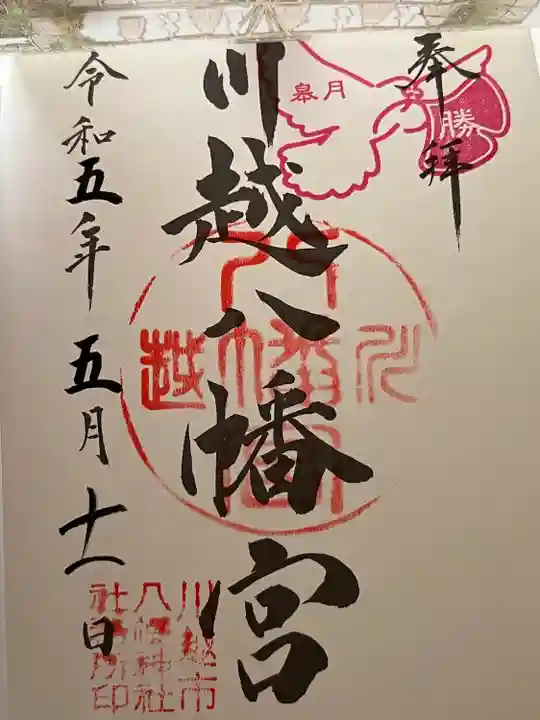 奉拝
勝
皐月
川越八幡宮
川越
八幡宮
令和五年 五月 十一日
川越市
八幡神社
社務所印